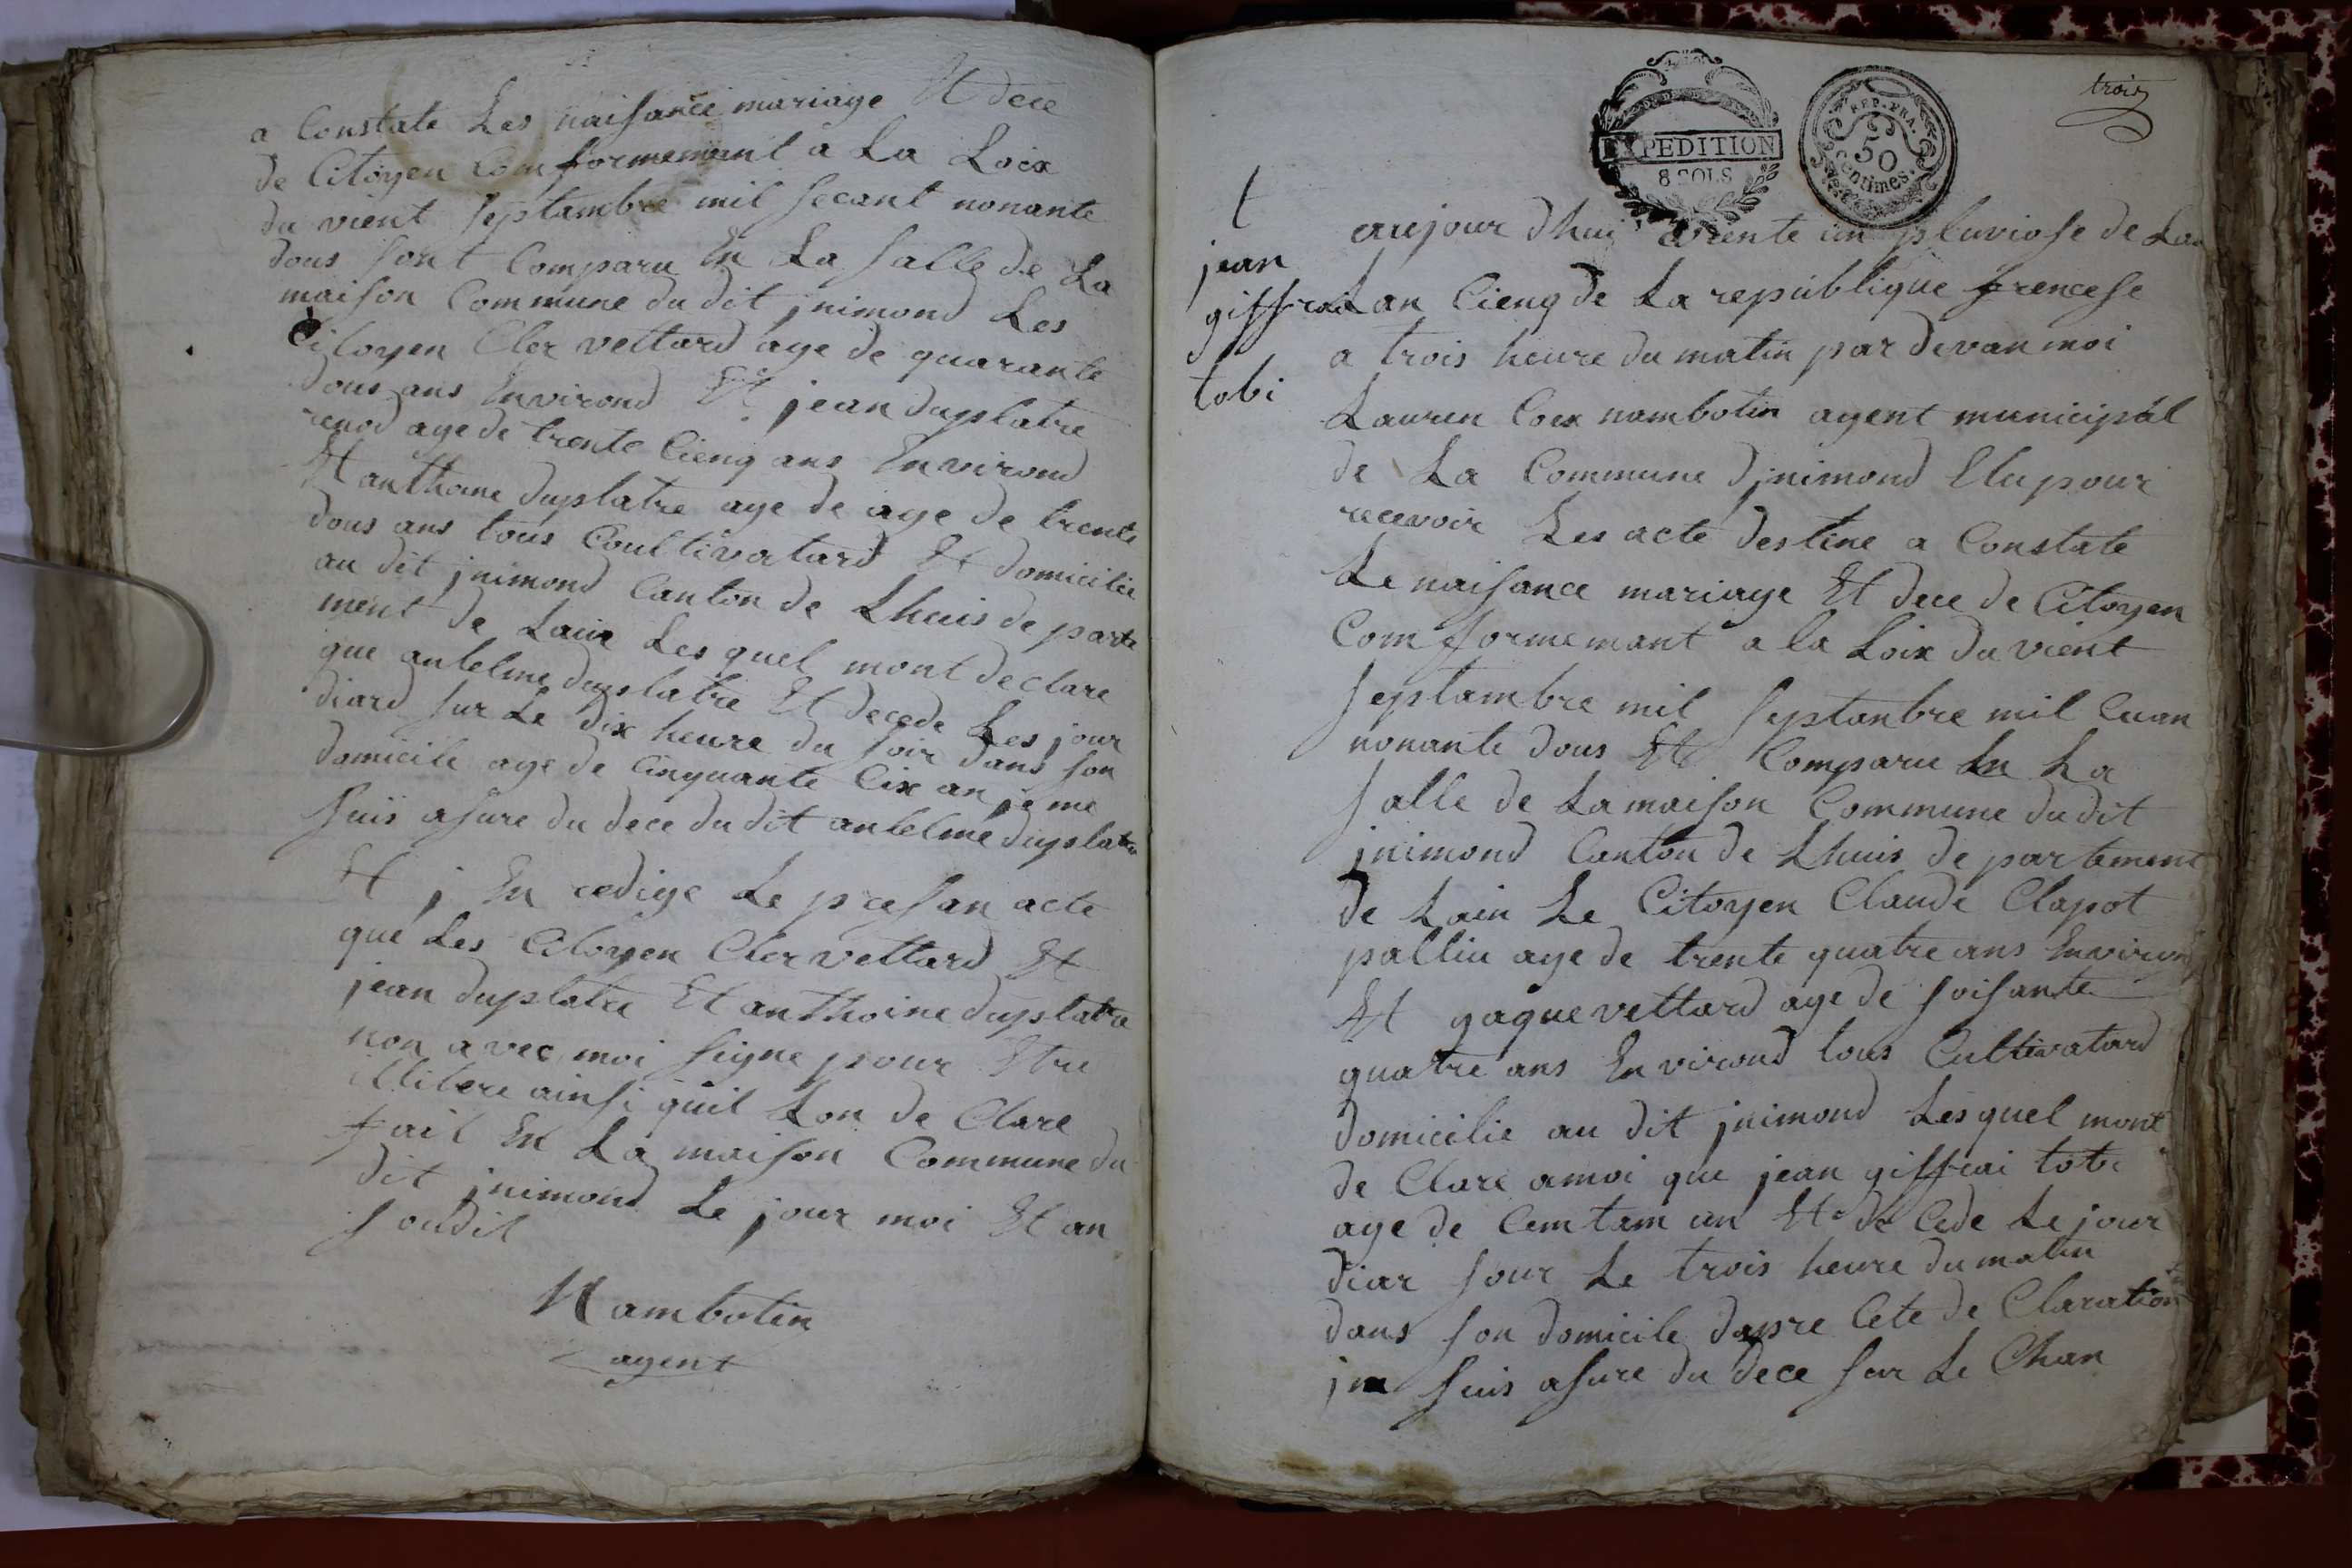 a Constate Les naisance mariage Et dece
de Citoyen Comformement a La Loix
du vient septambre mil secant nonante
dous sont Comparu En La salle de La
maison Commune du dit jnimond Les
Citoyen Cler vettard age de quarante
dous ans Environd Et jean duplatre
renod age de trente Cienq ans Environd
Et anthoine duplatre age de age de trente
dous ans tous Coultivatard Et domicilie
au dit jnimond Canton de Lhuis de parte
ment de Lain Les quel mont declare
que antelme duplatre Et decede Les jour
diard sur Le dix heure du soir dans son
domicile age de Cinquante Cix an je me
suis asure du dece du dit antelme duplatre
Et j En redige Le presan acte
que Les Citoyen Cler vettard Et
jean duplatre Et anthoine duplatre
non avec moi signe pour Etre
illitere ainsi quil Lon de Clare
fait En La maison Commune du
dit jnimond Le jour moi Et an
soudit
Nambotin
agent
trois
EXPEDITION
8 SOLS
REP. FRA.
50
Centimes.
t
jean
giffrai
tobi
aujour dhui trente un pluviose de Lan
Lan Cienq de La republique frencese
a trois heure du matin par devan moi
Lauren Coex nambotin agent municipal
de La Commune djnimond Elu pour
recevoir Les acte destine a Constate
Le naisance mariage Et dece de Citoyen
Comformemant a la Loix du vient
septambre mil septanbre mil Cuan
nonante dous Et Comparu En La
salle de La maison Commune du dit
jnimond Canton de Lhuis de partement
de Lain Le Citoyen Claude Clapot
palliu age de trente quatre ans Environ
Et gaque vettard age de soisante
quatre ans Environd tous Cultivatard
domicilie au dit jnimond Lesquel mont
de Clare amoi que jean giffrai tobi
age de Cemtam un Et de Cede Le jour
diar sour Le trois heure du matin
dans son domicile dapre Cete de Claration
jm suis asure du dece sur Le Chan